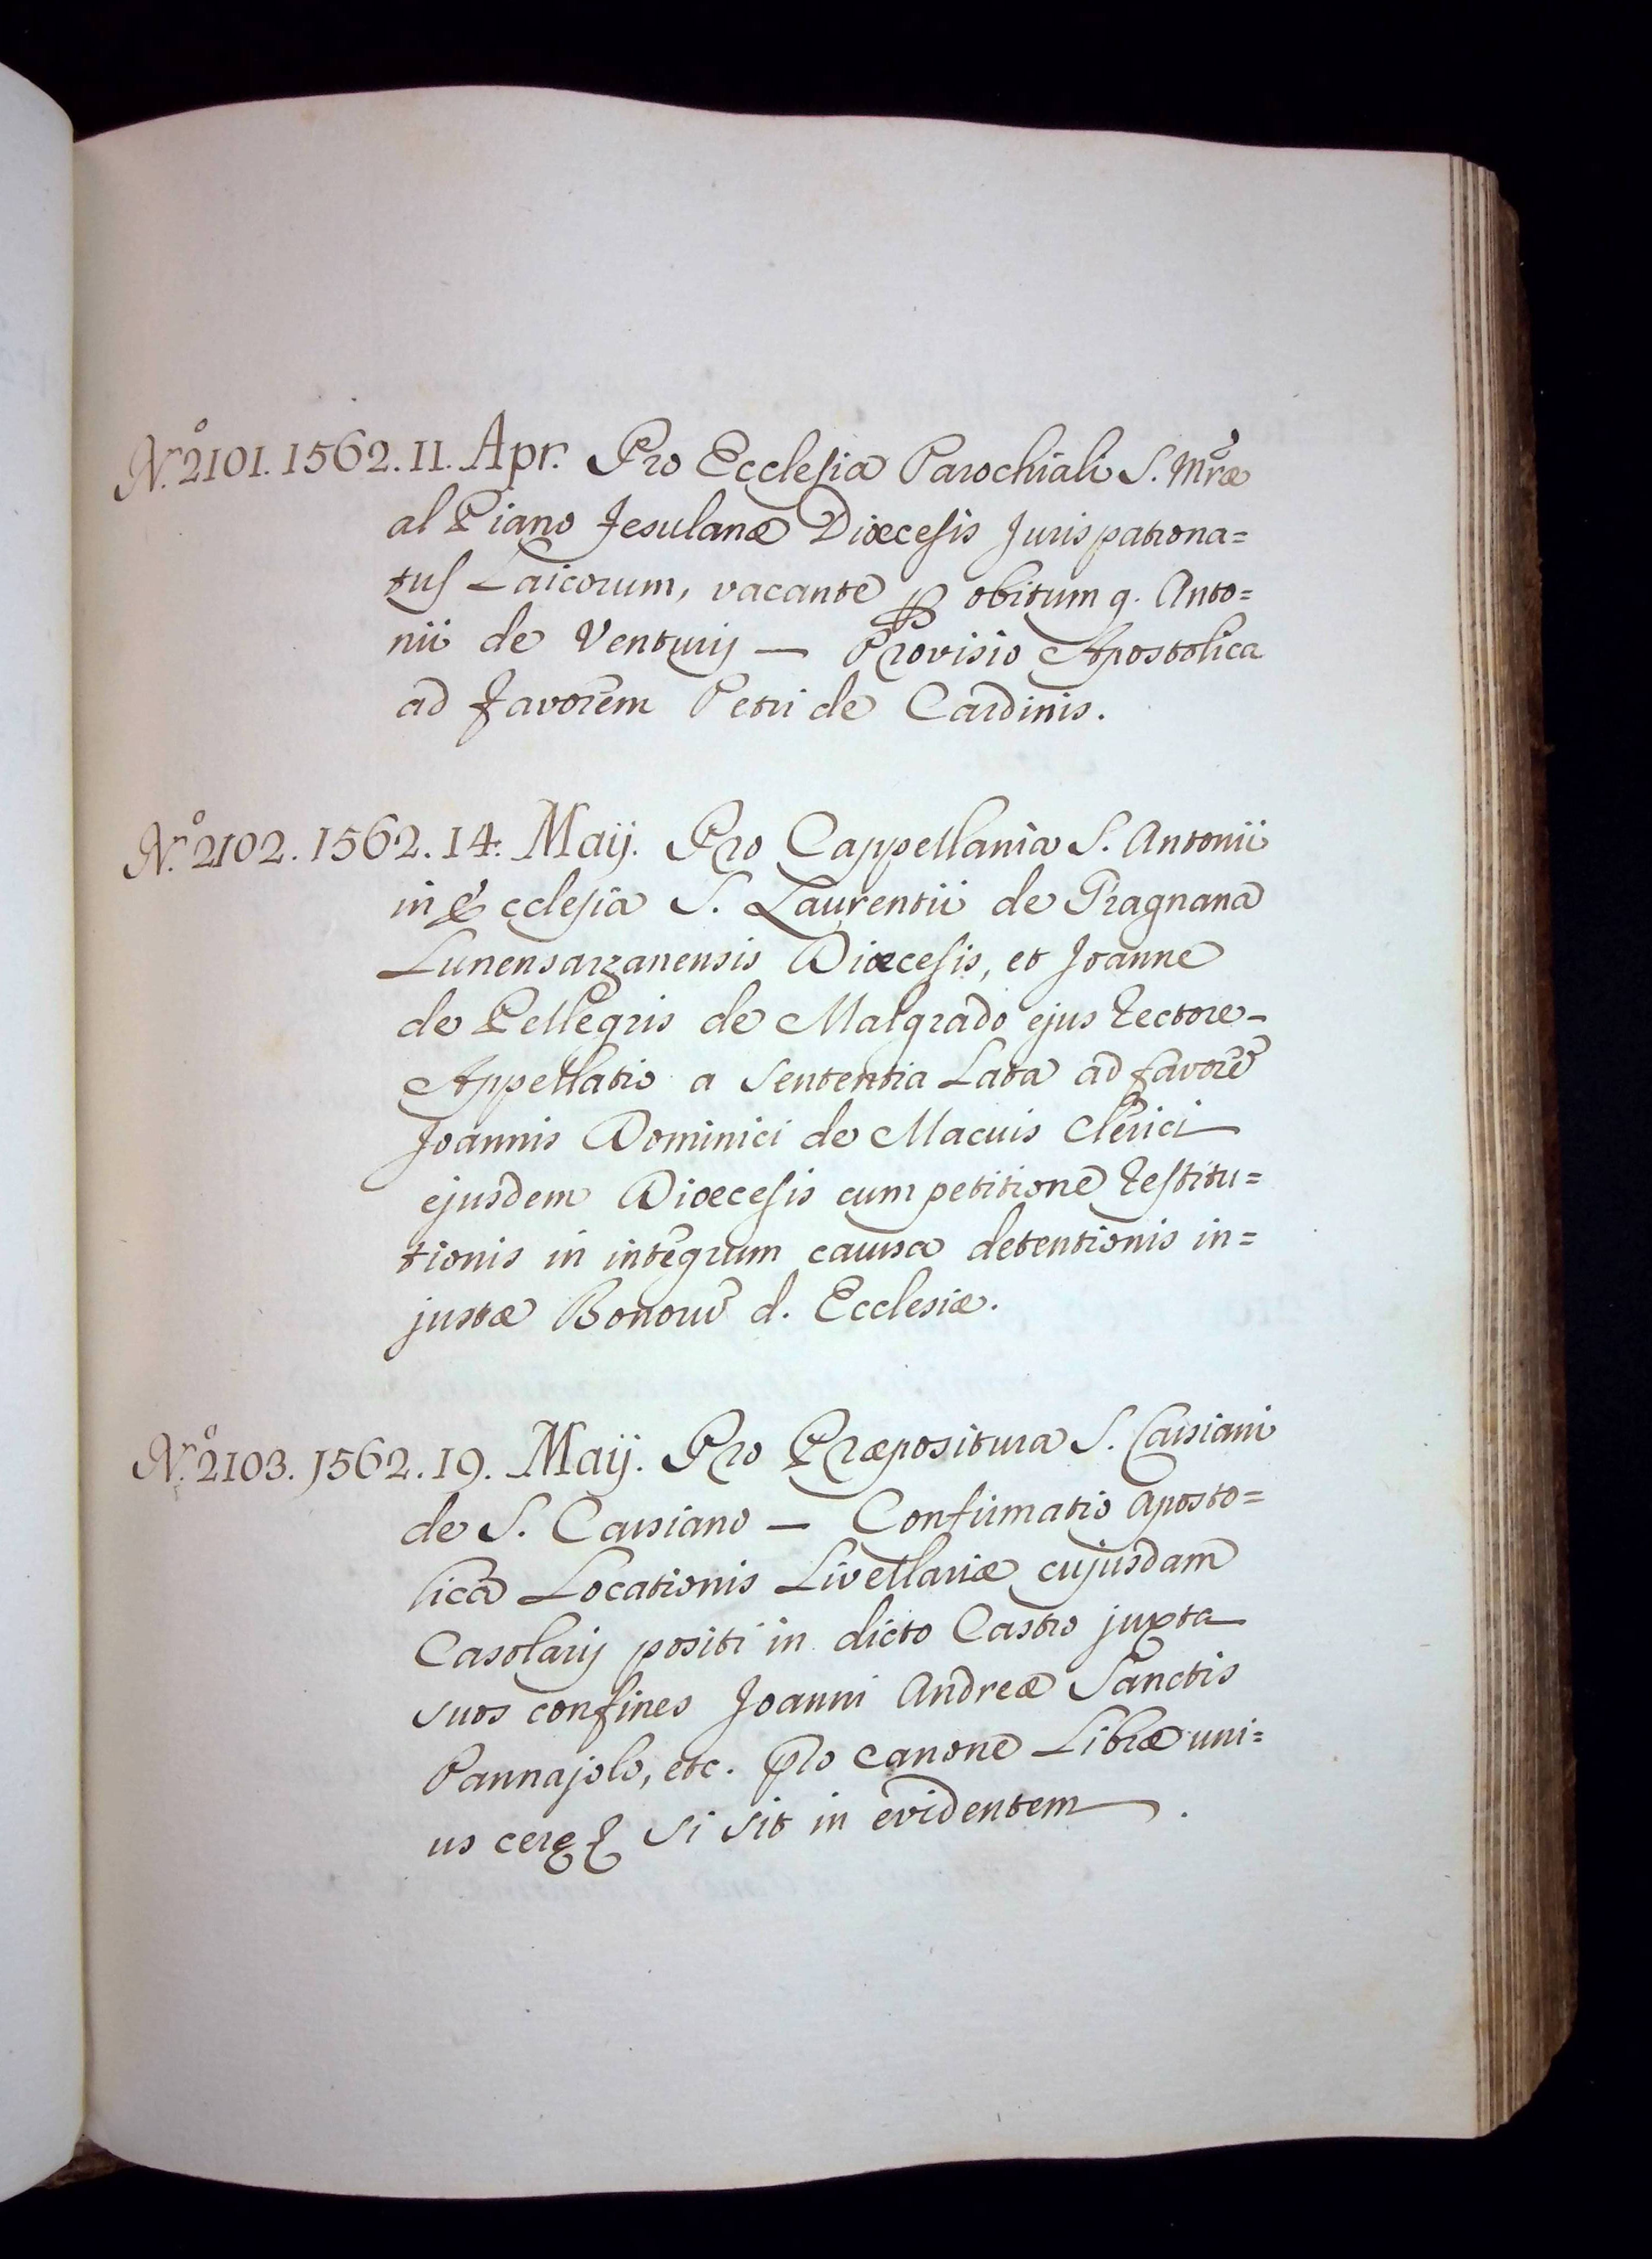 N.º 2101. 1562. 11. Apr. Pro Ecclesia Parochiali S. Mræ
al Piano Fesulanæ Diœcesis Jurispatrona=
tus Laicorum, vacante p obitum q. Anto=
nii de Venturij — Provisio Apostolica
ad favorem Petri de Cardinis.
N.º 2102. 1562. 14. Maij. Pro Cappellania S. Antonii
in Ecclesia S. Laurentii de Pragnana
Lunensarzanensis Diœcesis, et Joanne
de Pellegris de Malgrado ejus Rectore-
Appellatio a Sententia Lata ad favorē
Joannis Dominici de Macuis Clerici
ejusdem Diœcesis cum petitione Restitu=
tionis in integrum causa detentionis in=
justæ Bonorū d. Ecclesiæ.
N.º 2103. 1562. 19. Maij. Pro Præpositura S. Cassiani
de S. Cassiano — Confirmatio Aposto=
lica Locationis Livellariæ cujusdam
Casolarij positi in dicto Castro juxta
suos confines Joanni Andreæ Sanctis
Pannajolo, etc. pro canone Libræ uni=
us ceræ si sit in evidentem .